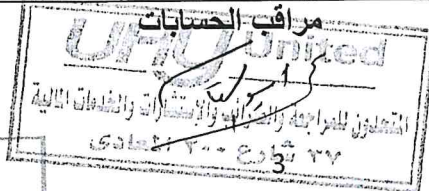 مراقب الحسابات
UHY United
المتحدون للمراجعة والضرائب والاستشارات والخدمات المالية
٢٧ شارع ٢٠٠ المعادى
3